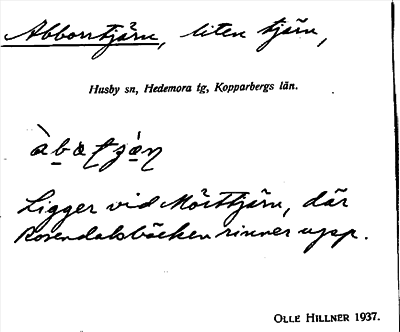 Abborrtjärn, liten tjärn,
Husby sn, Hedemora tg, Kopparbergs län.
àbæʈʂæ̀ɳ
Ligger vid Mörttjärn, där
Rosendalsbäcken rinner upp.
OLLE HILLNER 1937.